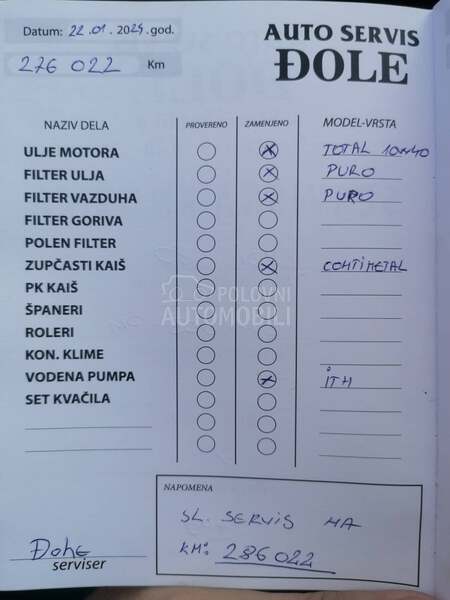 Datum: 22.01.2025.god.
276 022 Km
AUTO SERVIS
ĐOLE
NAZIV DELA PROVERENO ZAMENJENO MODEL-VRSTA
ULJE MOTORA TOTAL 10W40
FILTER ULJA PURO
FILTER VAZDUHA PURO
FILTER GORIVA
POLEN FILTER
ZUPČASTI KAIŠ CONTIMETAL
PK KAIŠ
ŠPANERI
ROLERI
KON. KLIME
VODENA PUMPA ITH
SET KVAČILA
POLOVNI
AUTOMOBILI
NAPOMENA
SL. SERVIS NA
KM: 286022
Đole
serviser